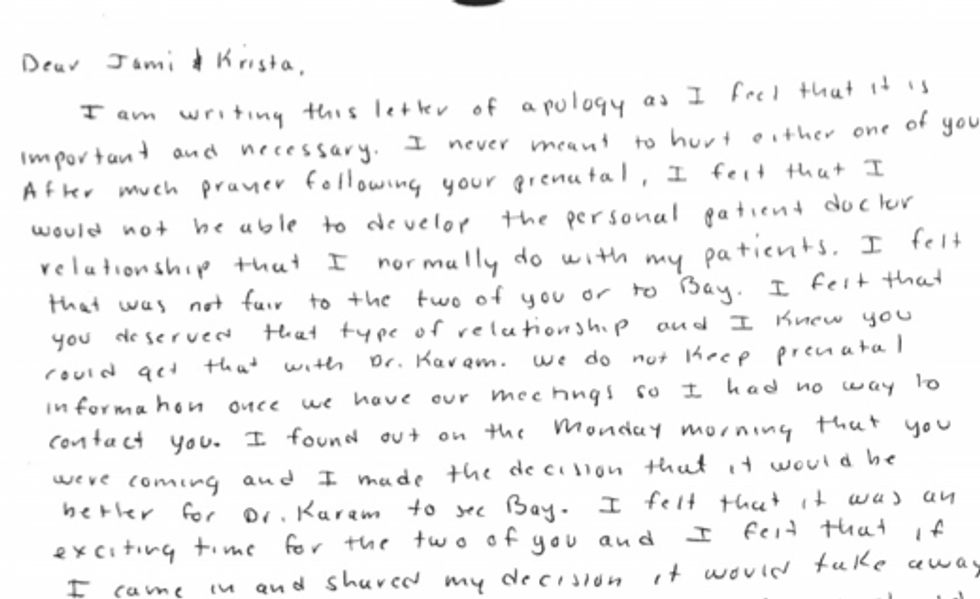 Dear Jami & Krista,
I am writing this letter of apology as I feel that it is
important and necessary. I never meant to hurt either one of you
After much prayer following your prenatal, I felt that I
would not be able to develop the personal patient doctor
relationship that I normally do with my patients. I felt
that was not fair to the two of you or to Bay. I felt that
you deserved that type of relationship and I knew you
could get that with Dr. Karam. We do not keep prenatal
information once we have our meetings so I had no way to
contact you. I found out on the Monday morning that you
were coming and I made the decision that it would be
better for Dr. Karam to see Bay. I felt that it was an
exciting time for the two of you and I felt that if
I came in and shared my decision it would take away